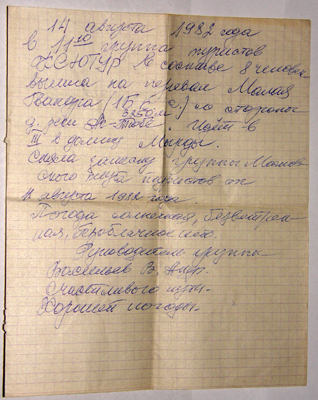 14 августа 1982 года
в 11 10 группа туристов
в составе 8 человек
вышла на перевал Малая
(1Б 3250 м.) со стороны
д. реки Ак-Тобе. Идёт в
в долину
сняла записку группы
туристов от
11 августа 1982 года
Погода солнечная, безветрен-
ная, безоблачное небо.
Руководитель группы
Васильев В. Андр.
Счастливого пути.
Хорошей погоды.